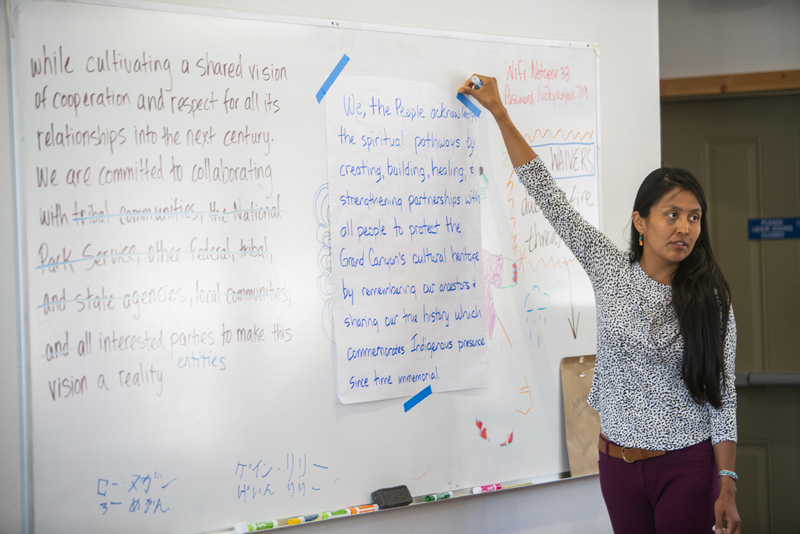 while cultivating a shared vision
of cooperation and respect for all its
relationships into the next century.
We are committed to collaborating
with tribal communities, the National
Park Service, other federal, tribal,
and state agencies, local communities,
and all interested parties to make this
entities
vision a reality
We, the People acknow
the spiritual pathways by
creating, building, healing, &
strengthening partnerships with
all people to protect the
Grand Canyon's cultural heritage
by remembering our ancestors &
sharing our true history which
commemorates Indigenous presence
since time immemorial.
Wifi Netgear 33
Password:
WAIVERS
fire
PLEASE
LEAVE DOORS
CLOSED
ロー・メガン
ろーめがん
ゲイン・リリー
げいん りりこ